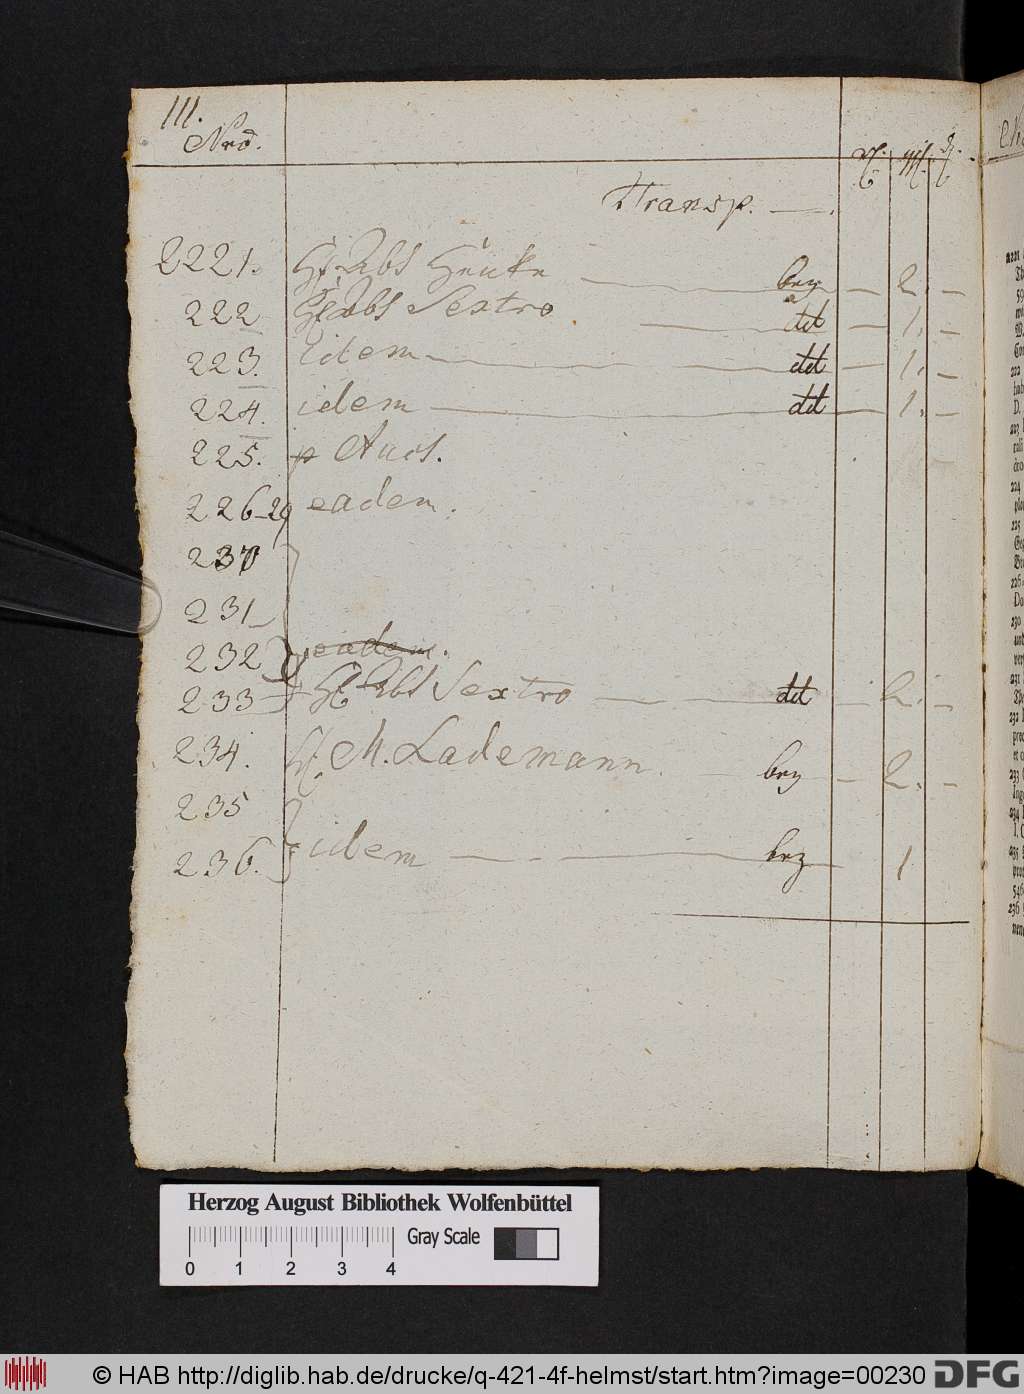 III.
Nro.
Transp.
2221. H. Abt Henke bez 2.
222 H. Abt Sextro dt 1.
223. idem dt 1.
224. idem dt 1.
225. p Auct.
226-29 eadem.
230
231
232 eadem.
233 H. Abt Sextro dt 2.
234. H. M. Lademann. bez 2.
235
236. idem bez 1
Herzog August Bibliothek Wolfenbüttel
Gray Scale
0 1 2 3 4
© HAB http://diglib.hab.de/drucke/q-421-4f-helmst/start.htm?image=00230 DFG